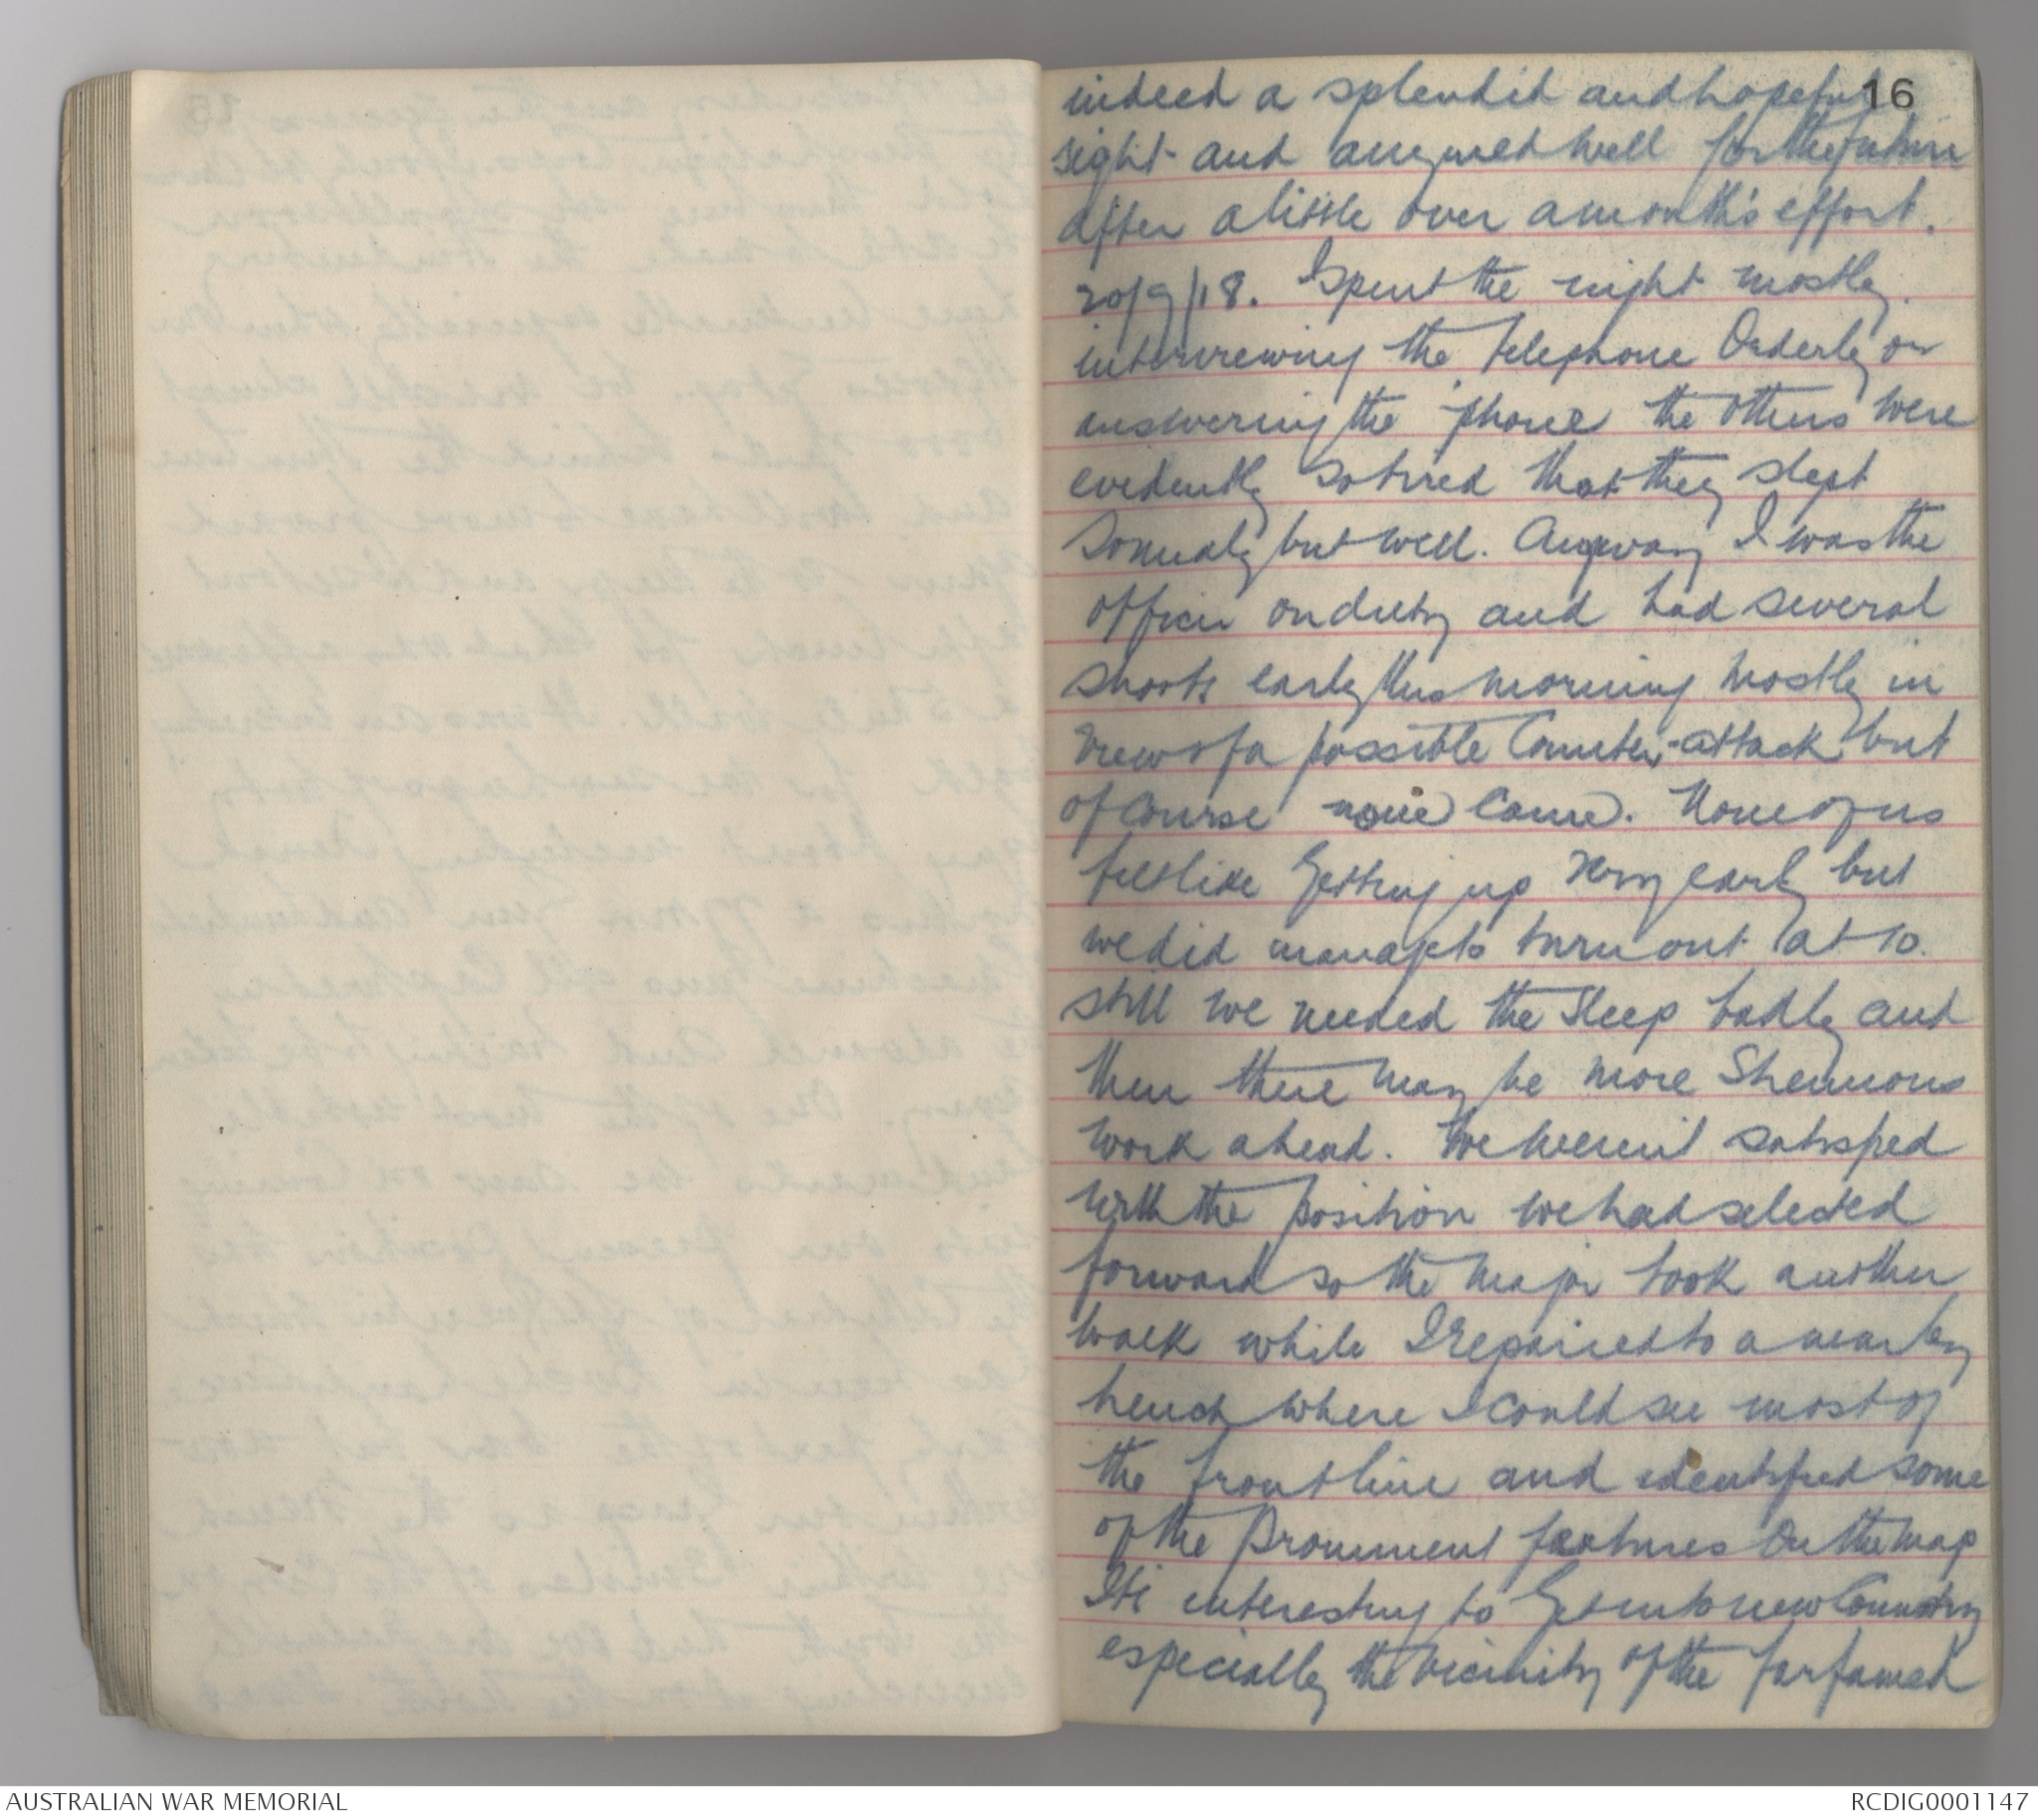 16
indeed a splendid and hopeful
sight and augured well for the future
after a little over a month's effort.
20/9/18. Spent the night mostly
interviewing the Telephone Orderly or
answering the 'phone the others were
evidently so tired that they slept
soundly but well. Anyway I was the
officer on duty and had several
shoots early this morning mostly in
view of a possible Counter-attack but
of course none came. None of us
felt like getting up very early but
we did manage to turn out at 10.
still we needed the sleep badly and
then there may be more Strenuous
work ahead. We weren't satisfied
with the position we had selected
forward so the Major took another
walk while I repaired to a nearby
trench where I could see most of
the front line and identified some
of the Prominent features on the map
Its interesting to get into new Country
especially the vicinity of the far famed
AUSTRALIAN WAR MEMORIAL
RCDIG0001147